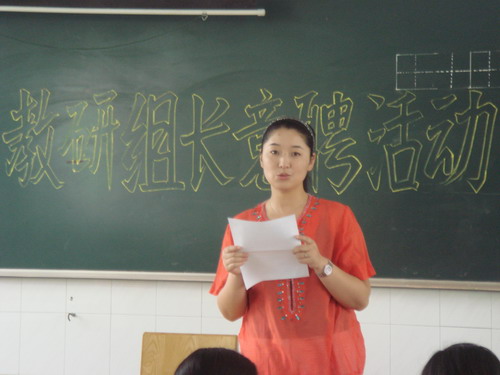 教研组长竞聘活动